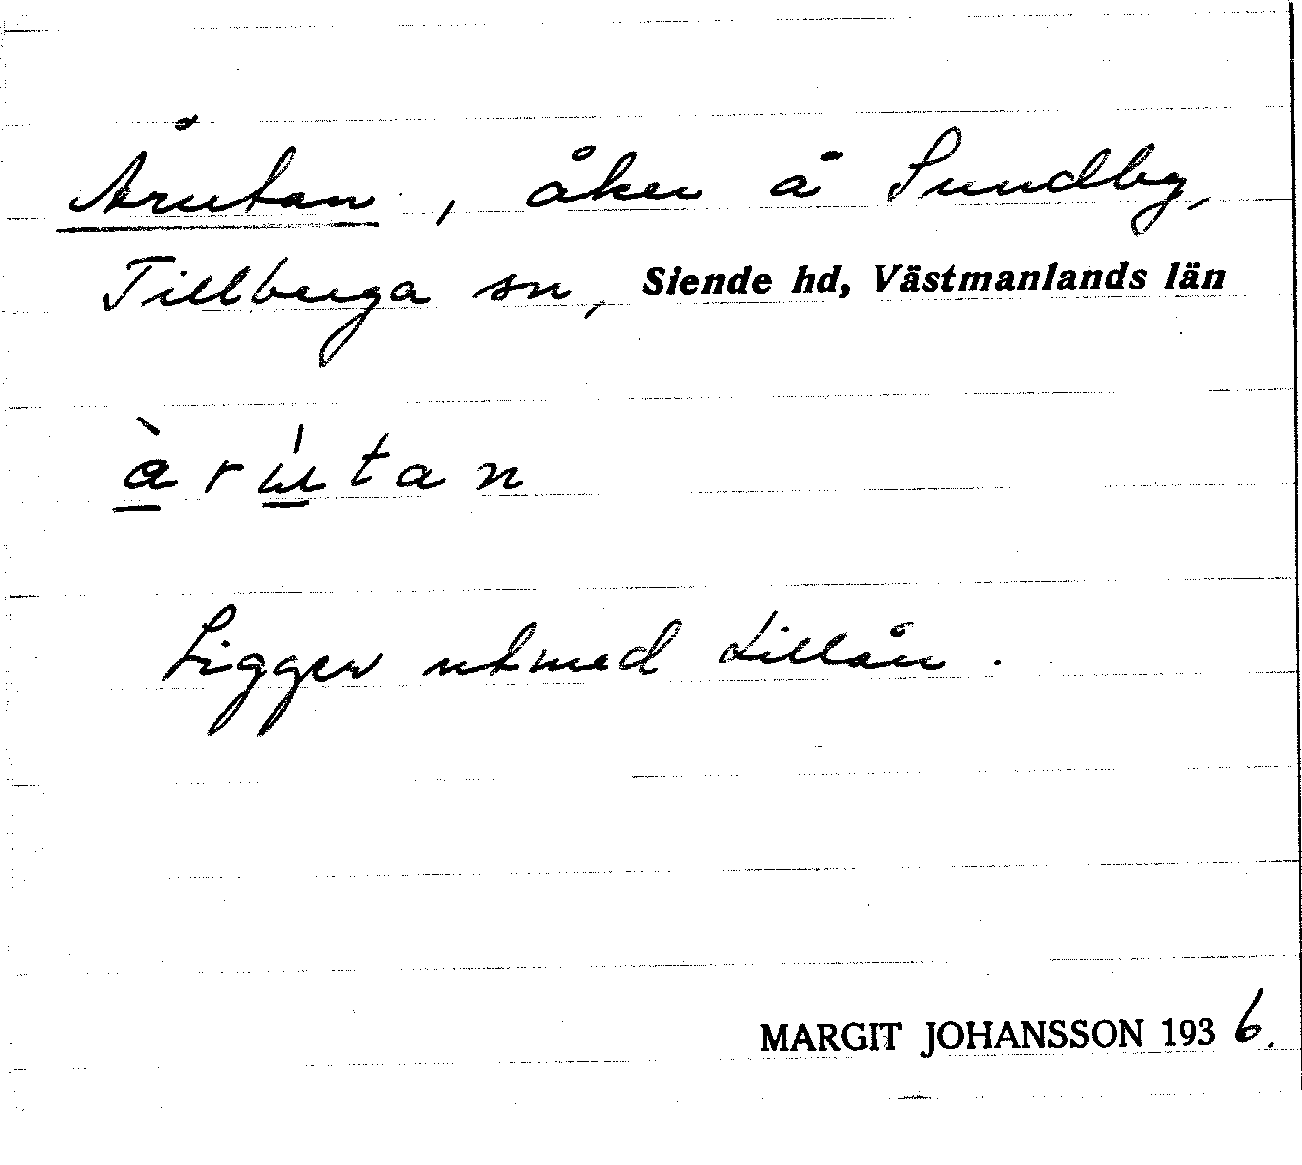 Årutan, åker å Sundby,
Tillberga sn, Siende hd, Västmanlands län
àrútan
Ligger utmed Lillån.
MARGIT JOHANSSON 1936.